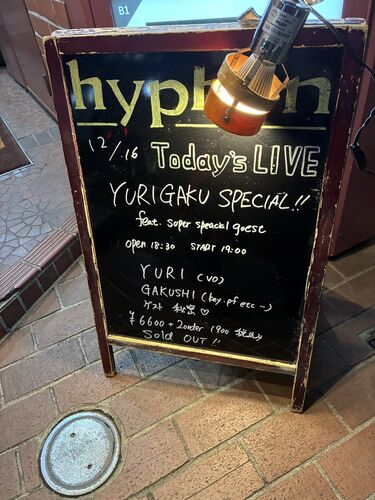 B1
hyphen
12/.16 Today's LIVE
YURIGAKU SPECIAL!!
feat. Soper speacial guest
open 18:30 START 19:00
YURI (vo)
GAKUSHI (key. pf ecc ~)
ゲスト 秘密♡
¥6600 + 2order 1900 税込
Sold OUT!!